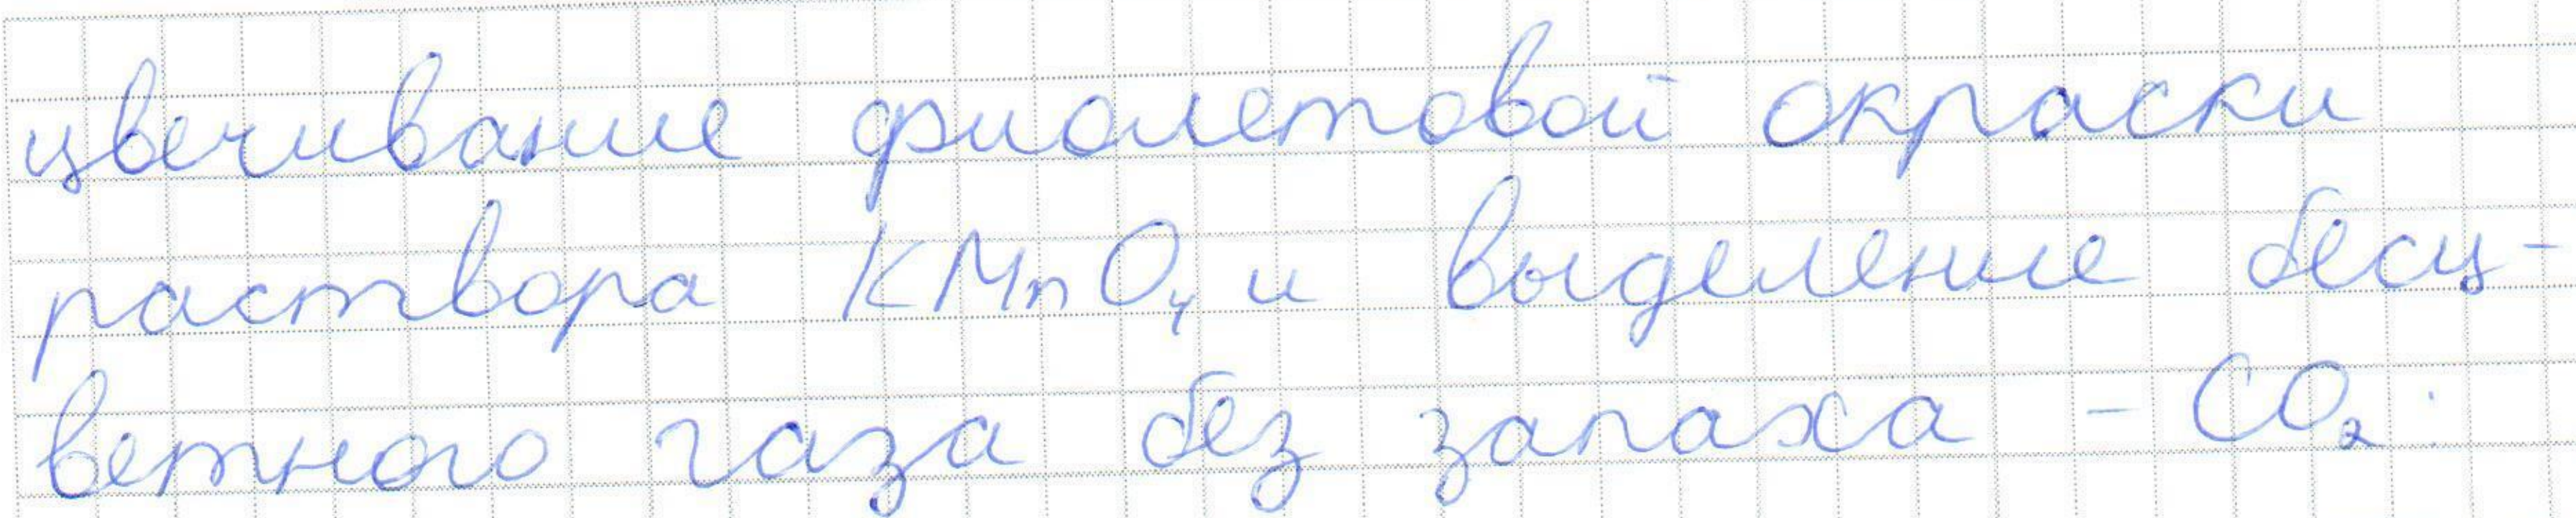 цвечивание фиолетовой окраски
раствора KMnO₄ и выделение бесц-
ветного газа без запаха - CO₂.